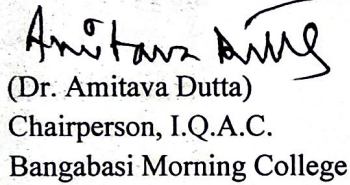 Amitava Dutta
(Dr. Amitava Dutta)
Chairperson, I.Q.A.C.
Bangabasi Morning College